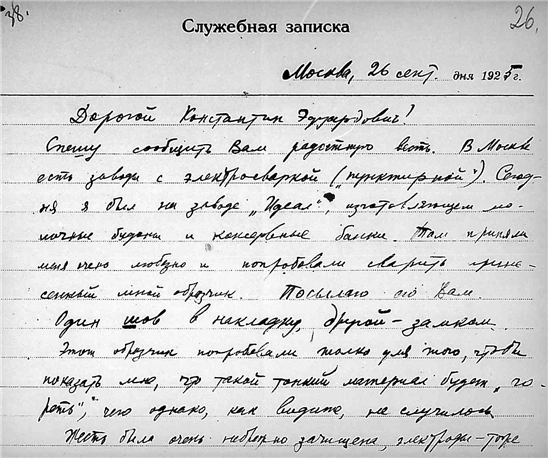 38.
26.
Служебная записка
Москва, 26 сент. дня 1925 г.
Дорогой Константин Эдуардович!
Спешу сообщить Вам радостную весть. В Москве
есть заводы с электросваркой („пунктирной"). Сегод-
ня я был на заводе „Идеал", изготовляющем мо-
лочные бидоны и консервные банки. Там приняли
меня очень любезно и попробовали сварить прине-
сенный мной образчик. Посылаю его Вам.
Один шов в накладку, другой – замком.
Этот образчик попробовали только для того, чтобы
показать мне, что такой тонкий материал будет „го-
реть", чего однако, как видите, не случилось
Жесть была очень небрежно зачищена, электроды – тоже